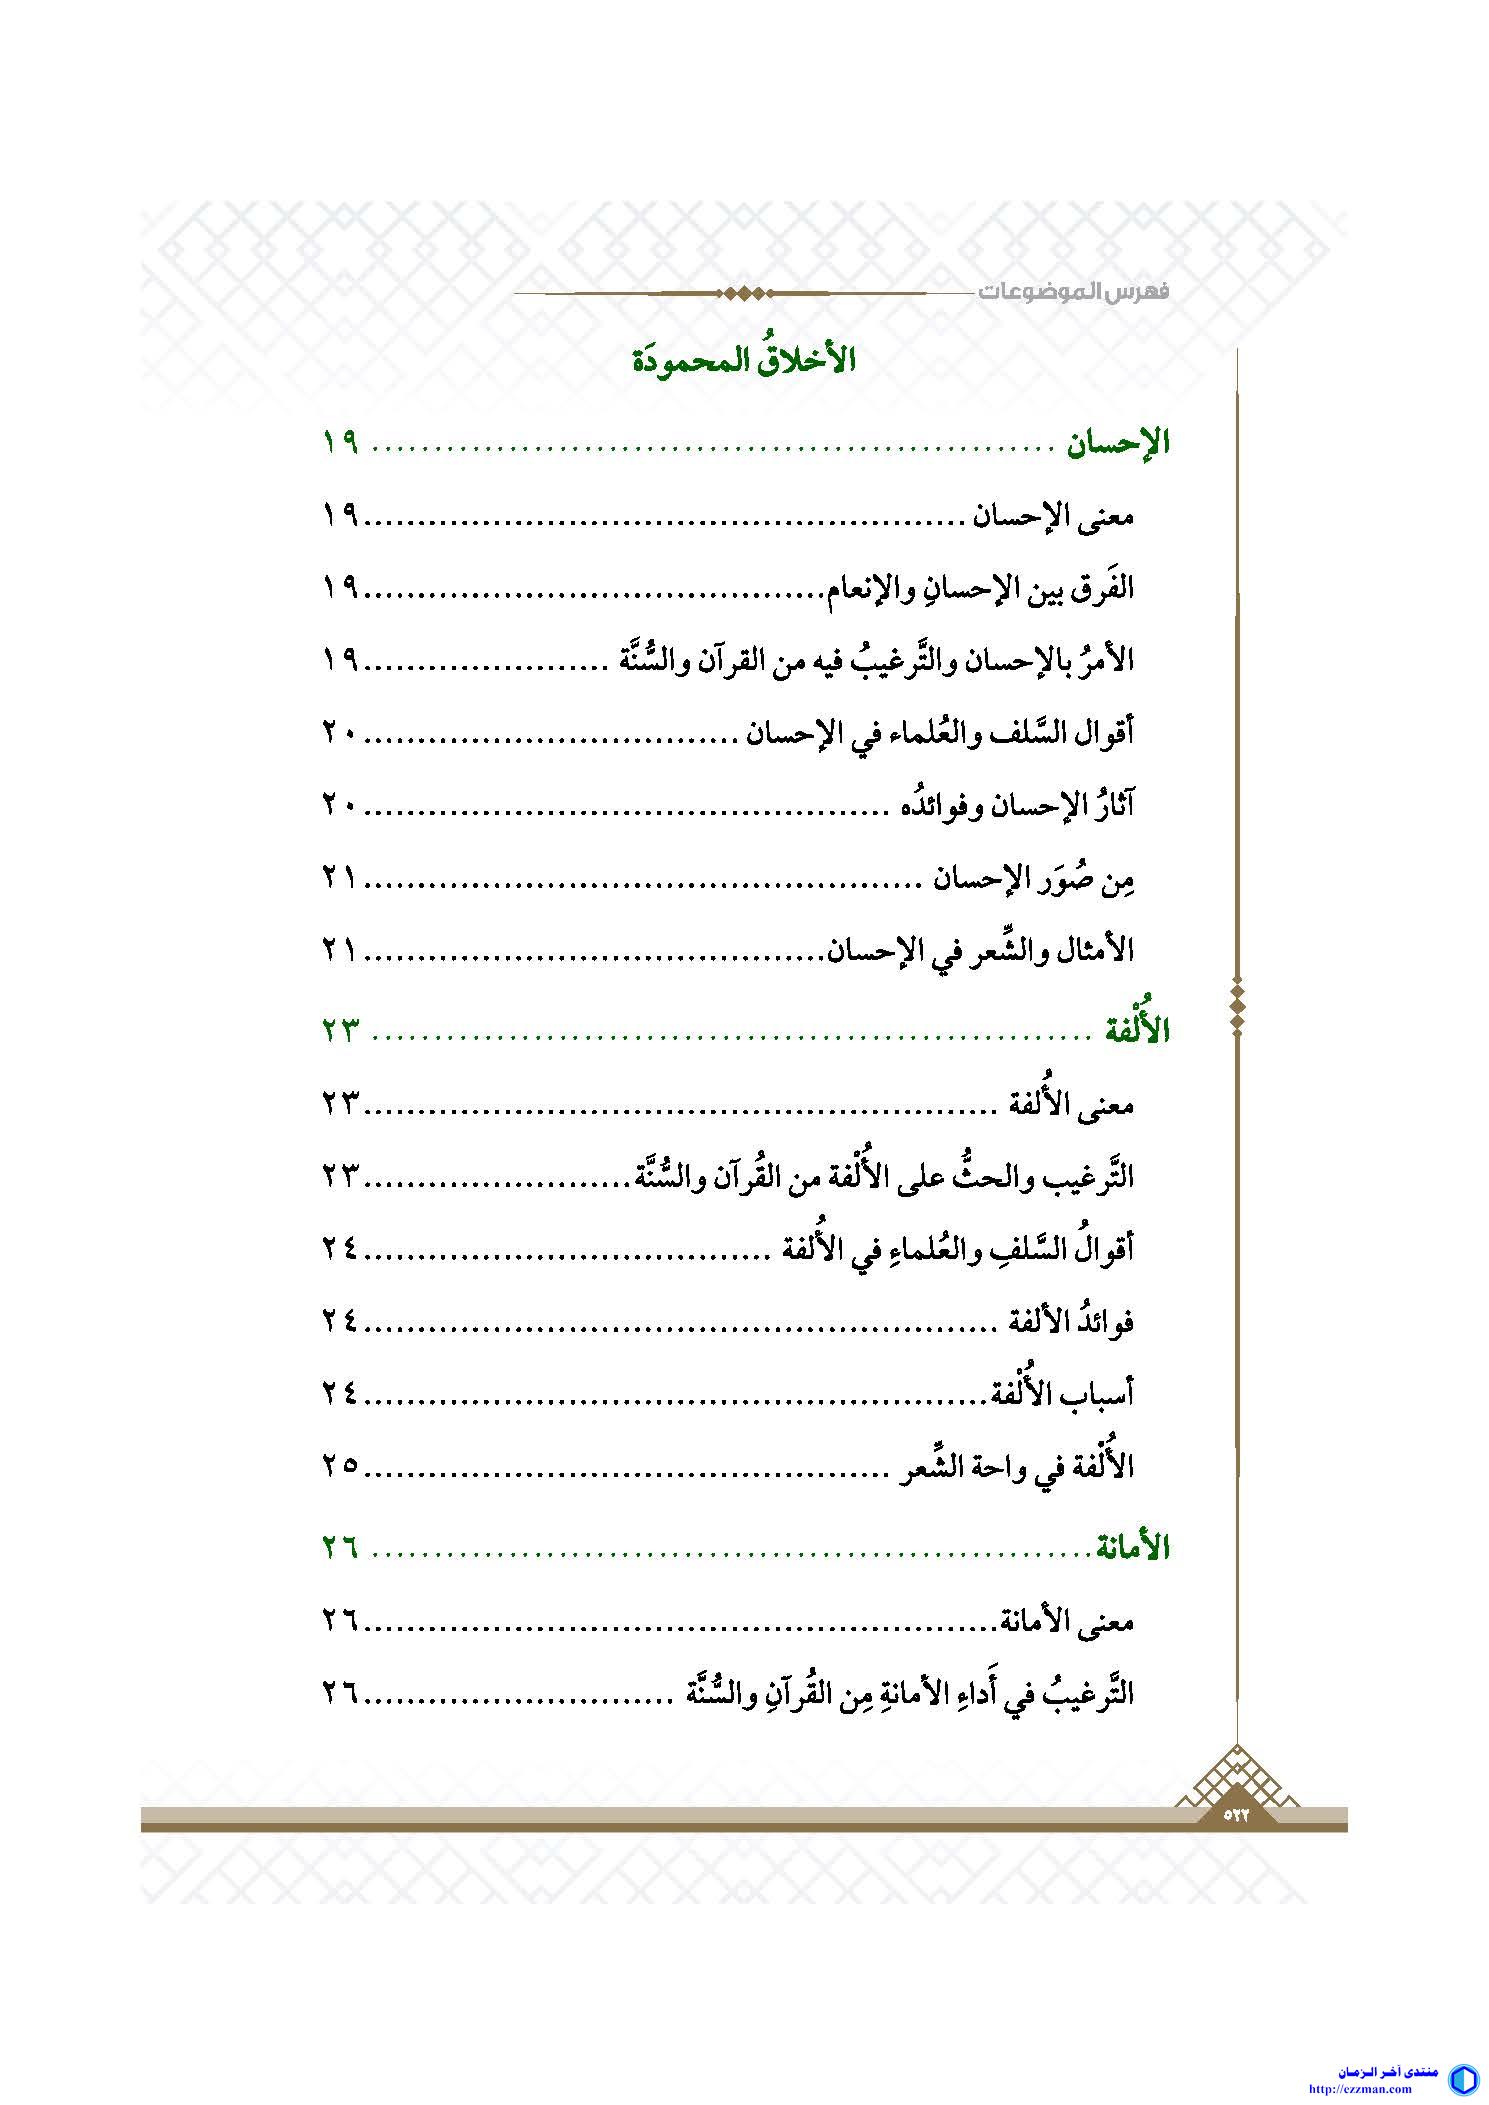 فهرس الموضوعات
الأخلاقُ المحمودَة
الإحسان ...................................................... ١٩
معنى الإحسان ........................................................ ١٩
الفَرق بين الإحسانِ والإنعام........................................... ١٩
الأمرُ بالإحسان والتَّرغيبُ فيه من القرآن والسُّنَّة ....................... ١٩
أقوال السَّلف والعُلماء في الإحسان ................................... ٢٠
آثارُ الإحسان وفوائدُه ................................................. ٢٠
مِن صُوَر الإحسان .................................................... ٢١
الأمثال والشِّعر في الإحسان........................................... ٢١
الأُلْفة ......................................................... ٢٣
معنى الأُلفة ........................................................... ٢٣
التَّرغيب والحثُّ على الأُلْفة من القُرآن والسُّنَّة......................... ٢٣
أقوالُ السَّلفِ والعُلماءِ في الأُلفة ...................................... ٢٤
فوائدُ الألفة ........................................................... ٢٤
أسباب الأُلْفة.......................................................... ٢٤
الأُلْفة في واحة الشِّعر ................................................. ٢٥
الأمانة......................................................... ٢٦
معنى الأمانة........................................................... ٢٦
التَّرغيبُ في أَداءِ الأمانةِ مِن القُرآنِ والسُّنَّة ............................. ٢٦
٥٢٢
منتدى آخر الزمان
http://ezzman.com